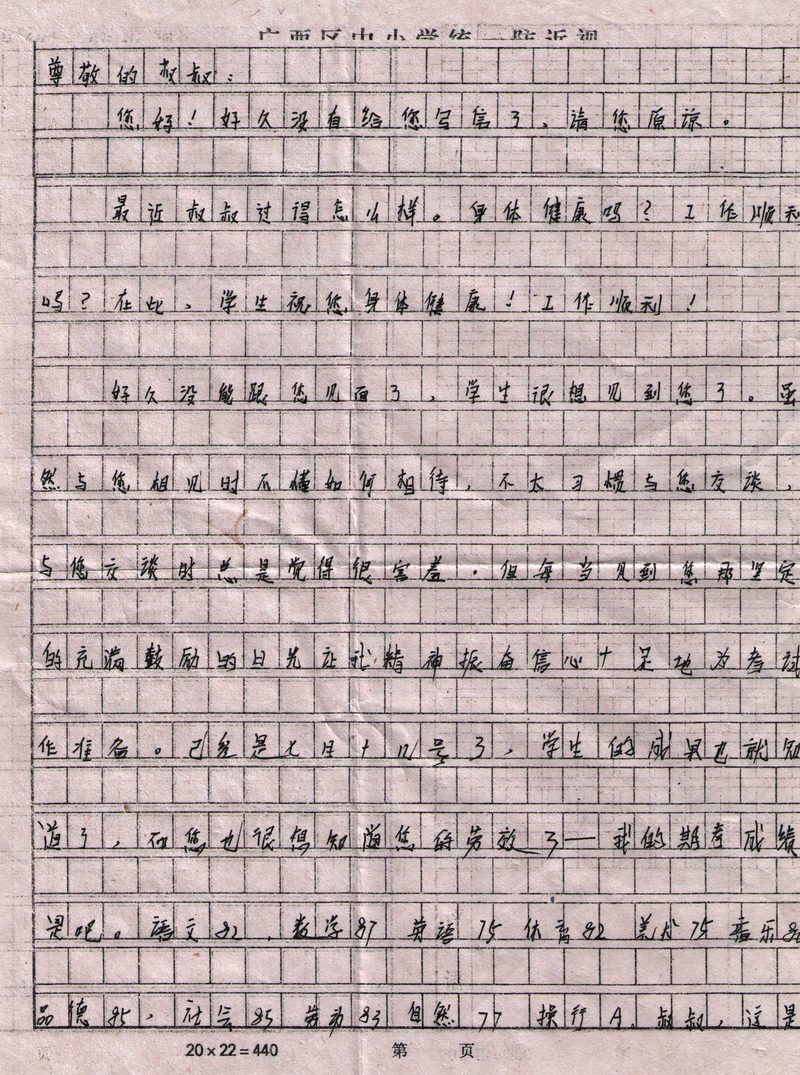 广西区中小学统一防近视
尊敬的叔叔：
您好！好久没有给您写信了，请您原谅。
最近叔叔过得怎么样。身体健康吗？工作顺利
吗？在此，学生祝您身体健康！工作顺利！
好久没能跟您见面了，学生很想见到您了。虽
然与您相见时不懂如何相待，不太习惯与您交谈，
与您交谈时总是觉得很害羞．但每当见到您那坚定
的充满鼓励的目光让我精神振奋信心十足地为考试
作准备。已经是七月十几号了，学生的成果也就知
道了，而您也很想知随您的劳效了—我的期考成绩
是吧。语文82，数学87 英语75 体育82 美术75 音乐
品德85，社会85 劳动83 自然77 操行A，叔叔，这是
20×22=440 第 页